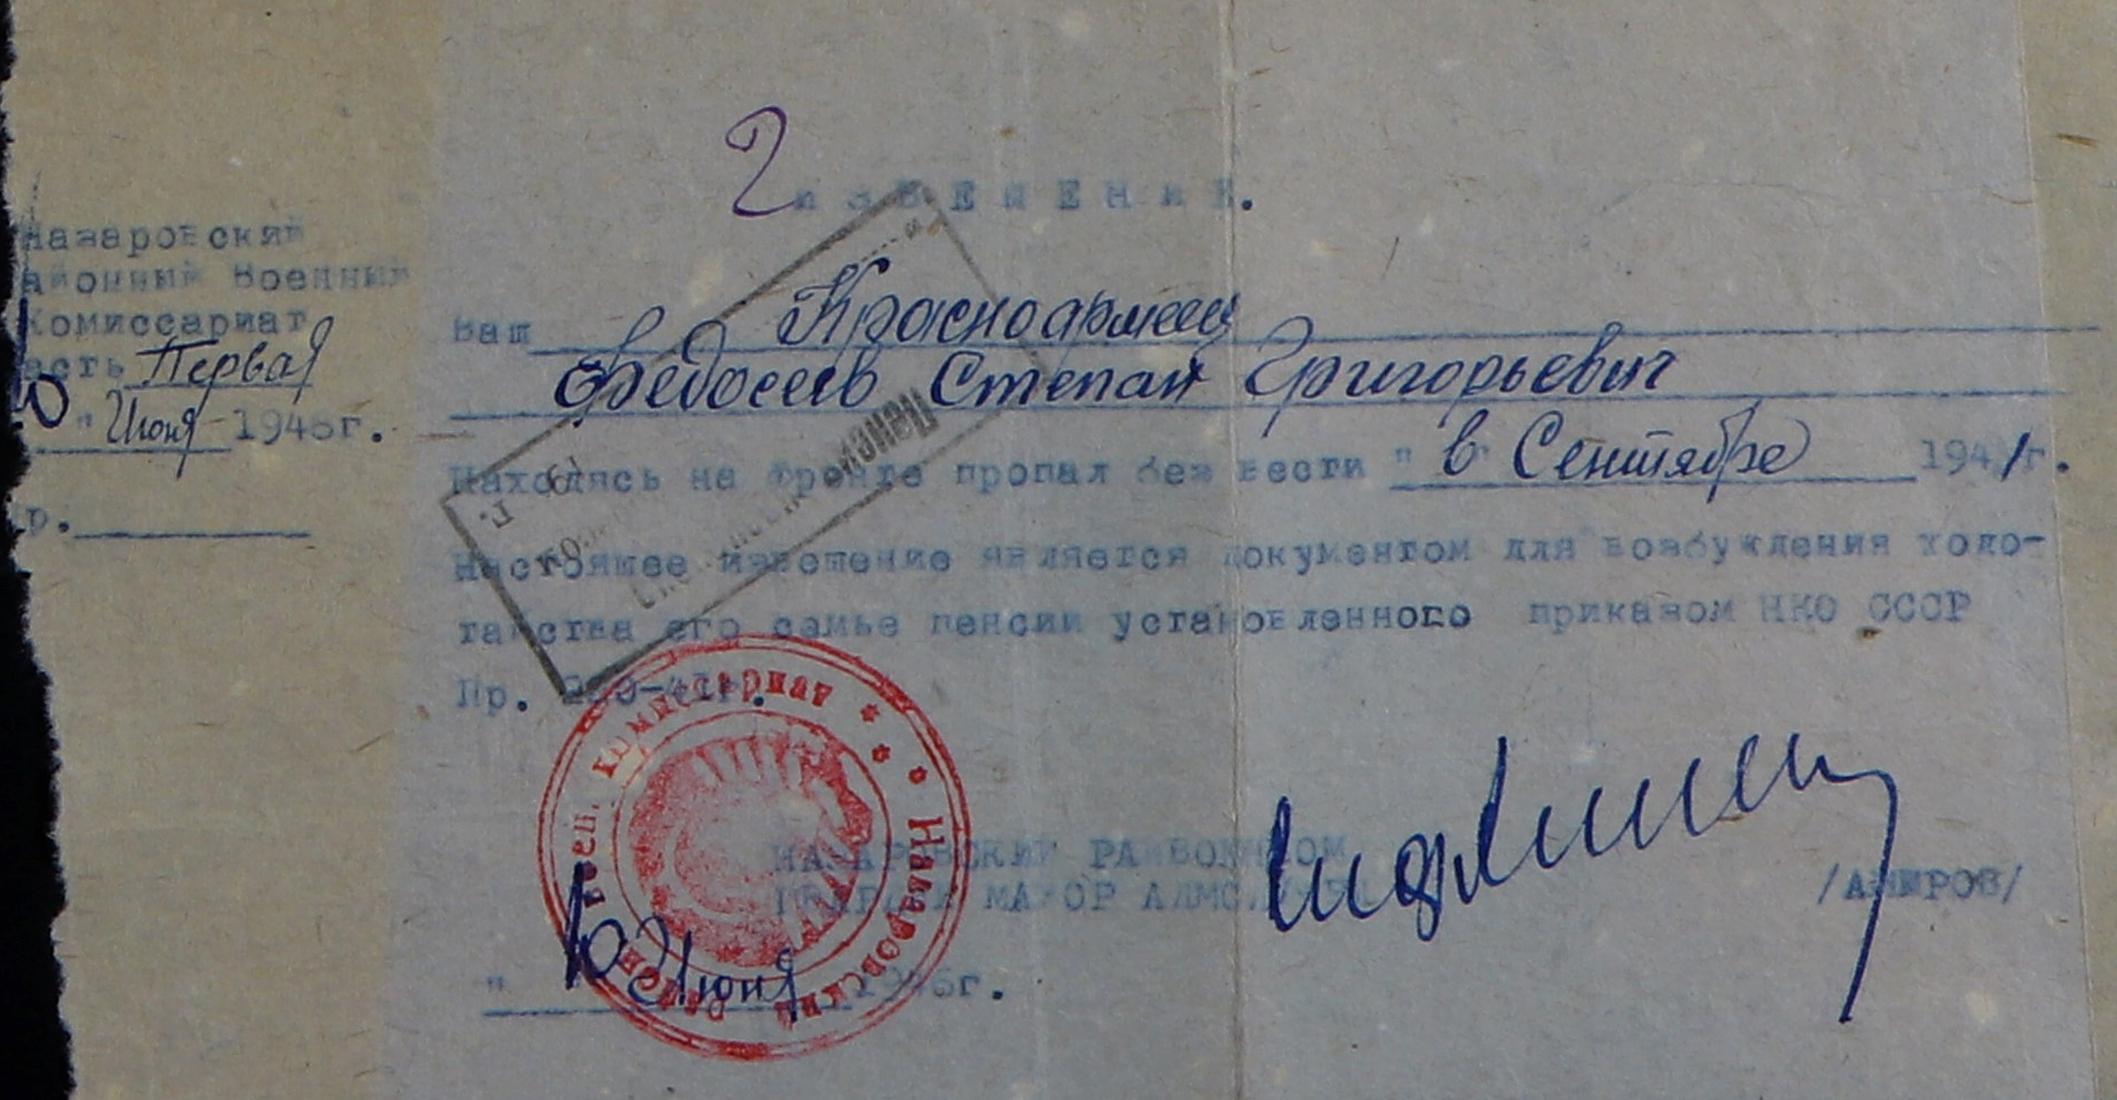 2
ИЗВЕЩЕНИЕ.
Назаровский
айонный Военный
Комиссариат
асть Первая
10 " Июня 1946г.
р.
Ваш Красноармеец
Федосеев Степан Григорьевич
Находясь на фронте пропал без вести " в Сентябре 1941г.
Настоящее извещение является документом для возбуждения ходо-
тайства его семье пенсии установленного приказом НКО СССР
Пр. -41г.
НАЗАРОВСКИЙ РАЙВОЕНКОМ
ГВАРДИИ МАЙОР АДМ.СЛУЖБЫ
/АМИРОВ/
" 10 Июня 1946г.
Назаровский Район. Воен. Комиссариат